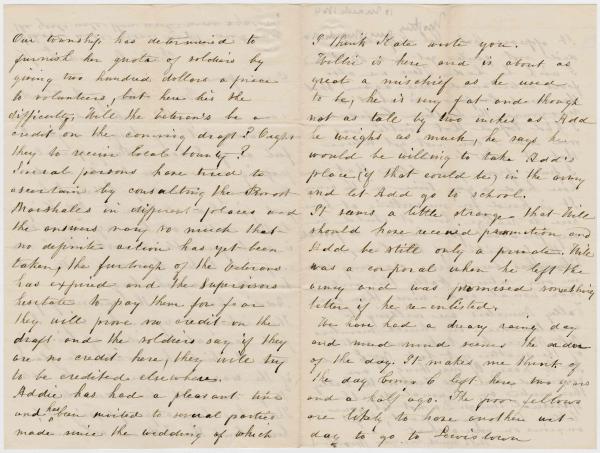 Our township has determined to
furnish her quota of soldiers by
giving two hundred dollars a piece
to volunteers, but here lies the
difficulty, Will the Veteran's be a
credit on the coming draft? Ought
they to receive local bounty?
Several persons have tried to
ascertain by consulting the Provost
Marshalls in different places and
the answers vary so much that
no definite action has yet been
taken, the furlough of the Veterans
has expired and the Supervisors
hesitate to pay them for fear
they will prove no credit on the
draft and the soldiers say if they
are no credit here, they will try
to be credited elsewhere.
Addie has had a pleasant time
and has been invited to several parties
made since the wedding of which
I think Kate wrote you.
is here and is about as
great a mischief as he used
to be, he is very fat and though
not as tall by two inches as Add
he weighs as much, he says he
would be willing to take Add's
place (if that could be) in the army
and let Add go to school.
It seems a little strange that Will
should have received promotion and
Add be still only a private. Will
was a corporal when he left the
army and was promised something
better if he re-enlisted.
We have had a dreary rainy day
and mud mud seems the order
of the day. It makes me think of
the day Comp C left here two years
and a half ago. The poor fellows
are likely to have another wet
day to go to Lewistown